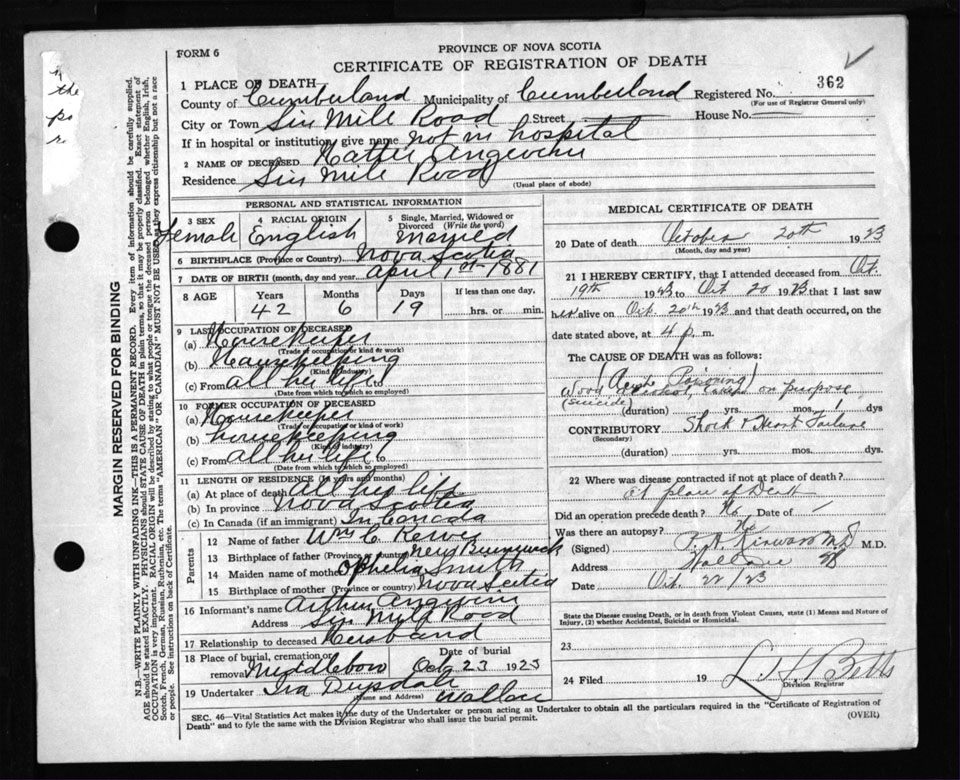 FORM 6
PROVINCE OF NOVA SCOTIA
CERTIFICATE OF REGISTRATION OF DEATH
1 PLACE OF DEATH—
County of Cumberland Municipality of Cumberland Registered No. 362
(For use of Registrar General only)
City or Town Six Mile Road Street House No.
If in hospital or institution, give name not in hospital
2 NAME OF DECEASED Hattie Angevine
Residence Six Mile Road
(Usual place of abode)
PERSONAL AND STATISTICAL INFORMATION
3 SEX Female
4 RACIAL ORIGIN English
5 Single, Married, Widowed or Divorced (Write the word) Married
6 BIRTHPLACE (Province or Country) Nova Scotia
7 DATE OF BIRTH (month, day and year) April 1st 1881
8 AGE Years Months Days If less than one day,
42 6 19 hrs. or min.
9 LAST OCCUPATION OF DECEASED
(a) Housekeeper
(Trade or occupation or kind of work)
(b) Housekeeping
(Kind of industry)
(c) From all her life to
(Date from which to which so employed)
10 FORMER OCCUPATION OF DECEASED
(a) Housekeeper
(Trade or occupation or kind of work)
(b) housekeeping
(Kind of industry)
(c) From all her life to
(Date from which to which so employed)
11 LENGTH OF RESIDENCE (in years and months)
(a) At place of death All her life
(b) In province Nova Scotia
(c) In Canada (if an immigrant) In Canada
Parents
12 Name of father Wm C.
13 Birthplace of father (Province or country) New Brunswick
14 Maiden name of mother Ophelia Smith
15 Birthplace of mother (Province or country) Nova Scotia
16 Informant's name Arthur Angevine
Address Six Mile Road
17 Relationship to deceased Husband
18 Place of burial, cremation or removal Middleboro Date of burial Oct 23 1923
19 Undertaker Ira Drysdale Wallace
(Name and Address)
MEDICAL CERTIFICATE OF DEATH
20 Date of death October 20th 1923
(Month, day and year)
21 I HEREBY CERTIFY, that I attended deceased from Oct.
19th 1923 to Oct 20 1923 that I last saw
her alive on Oct. 20th 1923 and that death occurred, on the
date stated above, at 4 p. m.
The CAUSE OF DEATH was as follows:
Poisoning)
Wood Alcohol, on purpose
(Suicide)
(duration) yrs. mos. 1 dys
CONTRIBUTORY Shock & Heart Failure
(Secondary)
(duration) yrs. mos. dys.
22 Where was disease contracted if not at place of death?
at place of Death
Did an operation precede death? No Date of
Was there an autopsy? No
(Signed) M.D. M.D.
Address Wallace
Date Oct 22/23
State the Disease causing Death, or in death from Violent Causes, state (1) Means and Nature of Injury, (2) whether Accidental, Suicidal or Homicidal.
23
24 Filed 19 Betts
Division Registrar
SEC. 46—Vital Statistics Act makes it the duty of the Undertaker or person acting as Undertaker to obtain all the particulars required in the "Certificate of Registration of
Death" and to fyle the same with the Division Registrar who shall issue the burial permit.
(OVER)
MARGIN RESERVED FOR BINDING
N.B.—WRITE PLAINLY WITH UNFADING INK—THIS IS A PERMANENT RECORD. Every item of information should be carefully supplied.
AGE should be stated EXACTLY. PHYSICIANS should STATE CAUSE OF DEATH in plain terms, so that it may be properly classified. Exact statement of
OCCUPATION is very important. RACIAL ORIGIN will be described by stating to what people or tongue the deceased person belonged whether English, Irish,
Scotch, French, German, Russian, Ruthenian, etc. The terms "AMERICAN" OR "CANADIAN" MUST NOT BE USED as they express citizenship but not a race
or people. See instructions on back of Certificate.
the